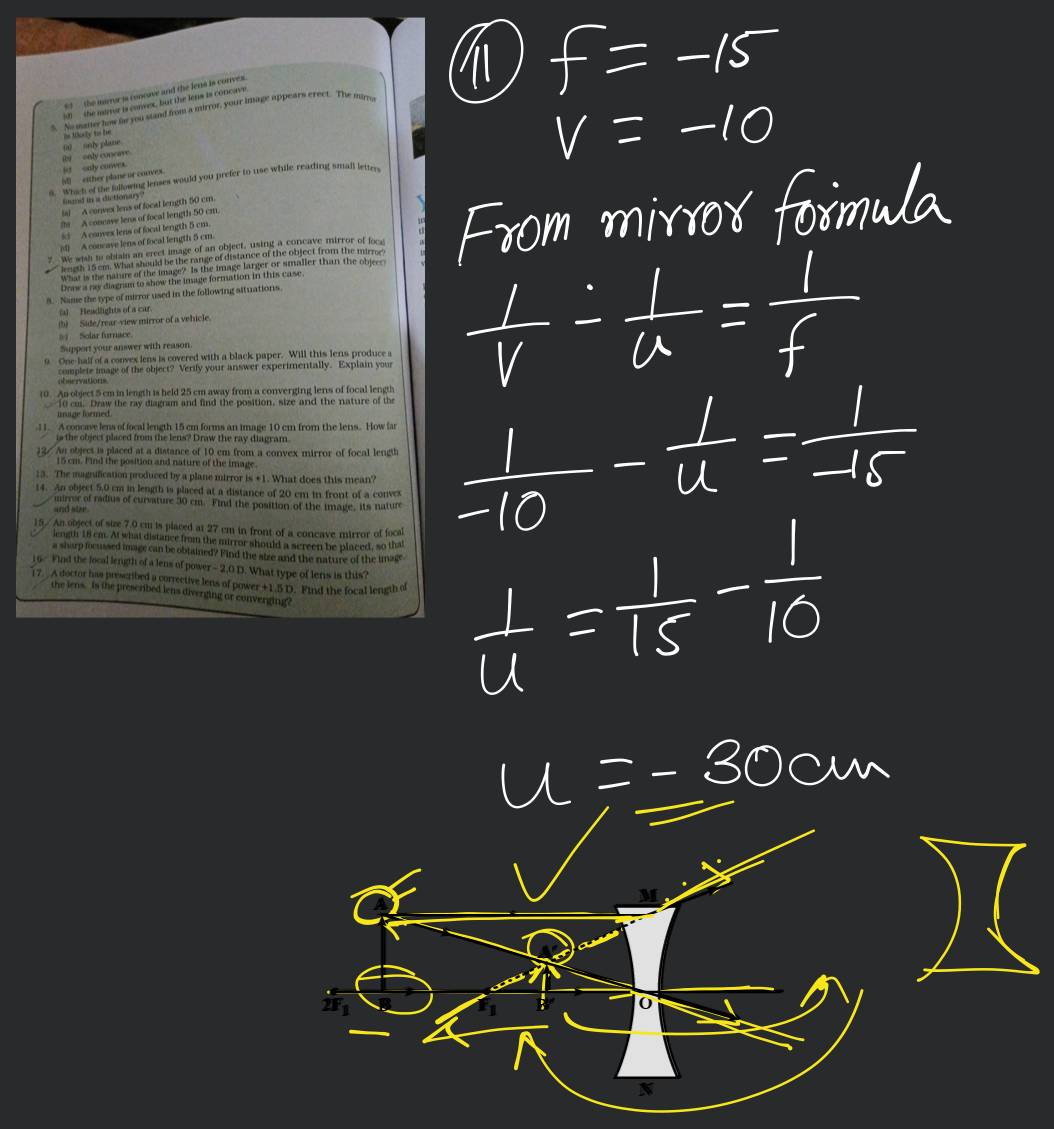 (c) the mirror is concave and the lens is convex.
(d) the mirror is convex, but the lens is concave.
5. No matter how far you stand from a mirror, your image appears erect. The mirror
is likely to be
(a) only plane.
(b) only concave.
(c) only convex.
(d) either plane or convex.
6. Which of the following lenses would you prefer to use while reading small letters
found in a dictionary?
(a) A convex lens of focal length 50 cm.
(b) A concave lens of focal length 50 cm.
(c) A convex lens of focal length 5 cm.
(d) A concave lens of focal length 5 cm.
7. We wish to obtain an erect image of an object, using a concave mirror of focal
length 15 cm. What should be the range of distance of the object from the mirror?
What is the nature of the image? Is the image larger or smaller than the object?
Draw a ray diagram to show the image formation in this case.
8. Name the type of mirror used in the following situations.
(a) Headlights of a car.
(b) Side/rear-view mirror of a vehicle.
(c) Solar furnace.
Support your answer with reason.
9. One-half of a convex lens is covered with a black paper. Will this lens produce a
complete image of the object? Verify your answer experimentally. Explain your
observations.
10. An object 5 cm in length is held 25 cm away from a converging lens of focal length
10 cm. Draw the ray diagram and find the position, size and the nature of the
image formed.
11. A concave lens of focal length 15 cm forms an image 10 cm from the lens. How far
is the object placed from the lens? Draw the ray diagram.
12. An object is placed at a distance of 10 cm from a convex mirror of focal length
15 cm. Find the position and nature of the image.
13. The magnification produced by a plane mirror is +1. What does this mean?
14. An object 5.0 cm in length is placed at a distance of 20 cm in front of a convex
mirror of radius of curvature 30 cm. Find the position of the image, its nature
and size.
15. An object of size 7.0 cm is placed at 27 cm in front of a concave mirror of focal
length 18 cm. At what distance from the mirror should a screen be placed, so that
a sharp focussed image can be obtained? Find the size and the nature of the image.
16. Find the focal length of a lens of power – 2.0 D. What type of lens is this?
17. A doctor has prescribed a corrective lens of power +1.5 D. Find the focal length of
the lens. Is the prescribed lens diverging or converging?
11 f = -15
v = -10
From mirror formula
1/v - 1/u = 1/f
1/-10 - 1/u = 1/-15
1/u = 1/15 - 1/10
u = - 30cm
A M
A'
2F₁ B F₁ B' O
N